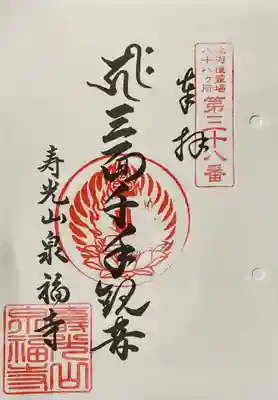 三河新四国霊場
八十八ヶ所
第三十八番
奉拝
三面千手観音
寿光山泉福寺
寿光山
泉福寺